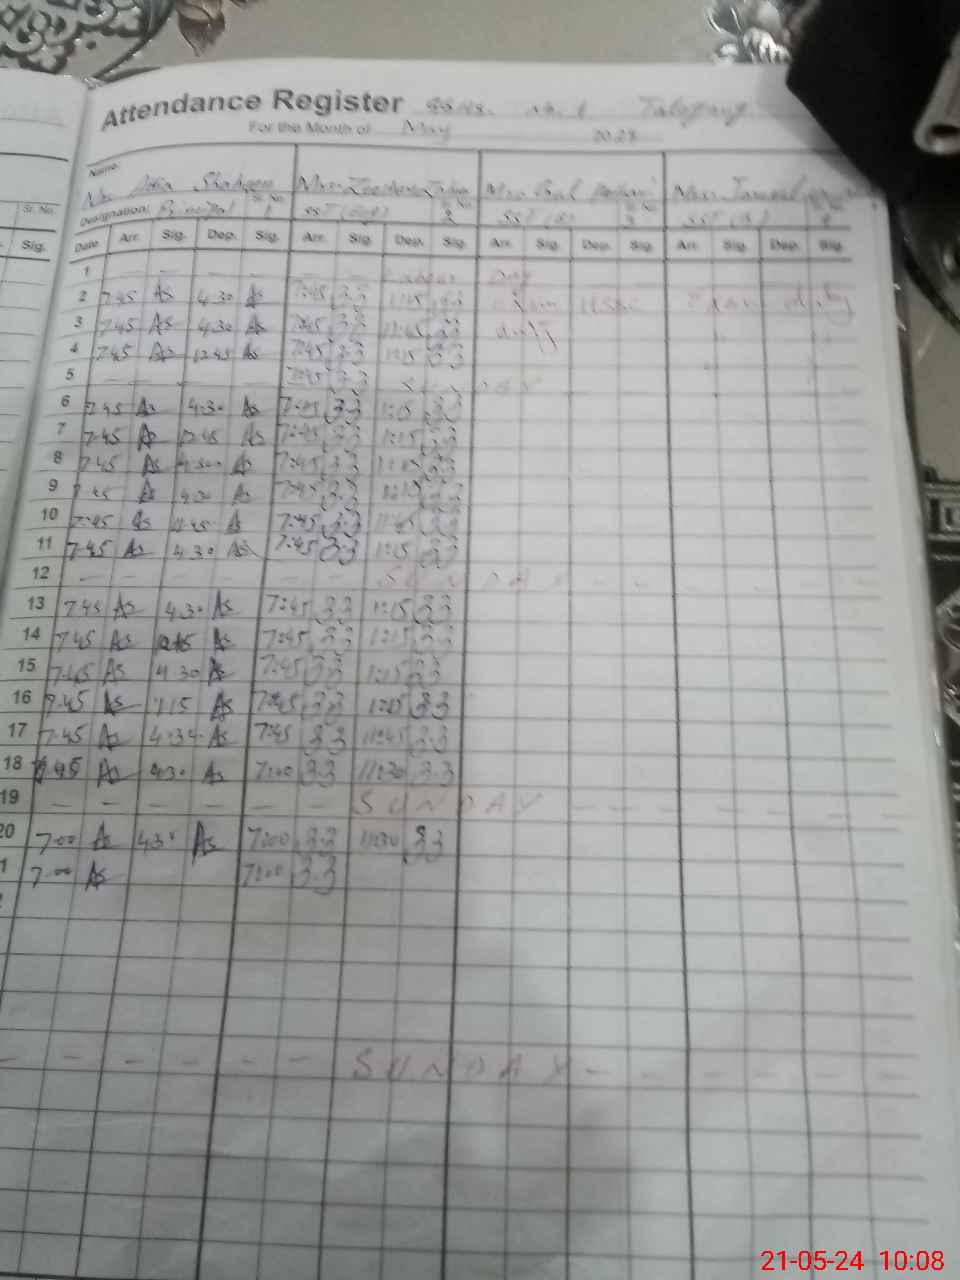 Attendance Register GGHS. No. 1 Talagang
For the Month of May 20 24
Name:
Sr. No. Shaheen Mrs. Mrs. Gul Mrs.
Designation: Principal 1 SST 2 SST 3 SST 4
Sig. Date Arr. Sig. Dep. Sig. Arr. Sig. Dep. Sig. Arr. Sig. Dep. Sig. Arr. Sig. Dep. Sig.
1 — — — — — — Labour Day
2 7:45 As 4:30 As 7:45 33 1:15 33 Exam HSSC Exam duty
3 7:45 As 4:30 As 7:45 33 11:45 33 duty
4 7:45 As 12:45 As 7:45 33 1:15 33
5 — — — — 7:45 33 SUNDAY
6 7:45 As 4:30 As 7:45 33 1:15 33
7 7:45 As 12:45 As 7:45 33 1:15 33
8 7:45 As 4:30 As 7:45 33 33
9 7:45 As 4:30 As 7:45 33 33
10 7:45 As 11:45 As 7:45 33 11:45 33
11 7:45 As 4:30 As 7:45 33 1:15 33
12 — — — — — — SUNDAY — — — — —
13 7:45 As 4:30 As 7:45 33 1:15 33
14 7:45 As As 7:45 33 1:15 33
15 7:45 As 4:30 As 7:45 33 1:15 33
16 7:45 As 1:15 As 7:45 33 33
17 7:45 As 4:34 As 7:45 33 11:45 33
18 As 4:30 As 7:00 33 11:30 33
19 — — — — — — SUNDAY — — — — —
20 7:00 As 4:30 As 7:00 33 11:30 33
1 7:00 As 7:00 33
— — — — — — SUNDAY — — — — —
21-05-24 10:08